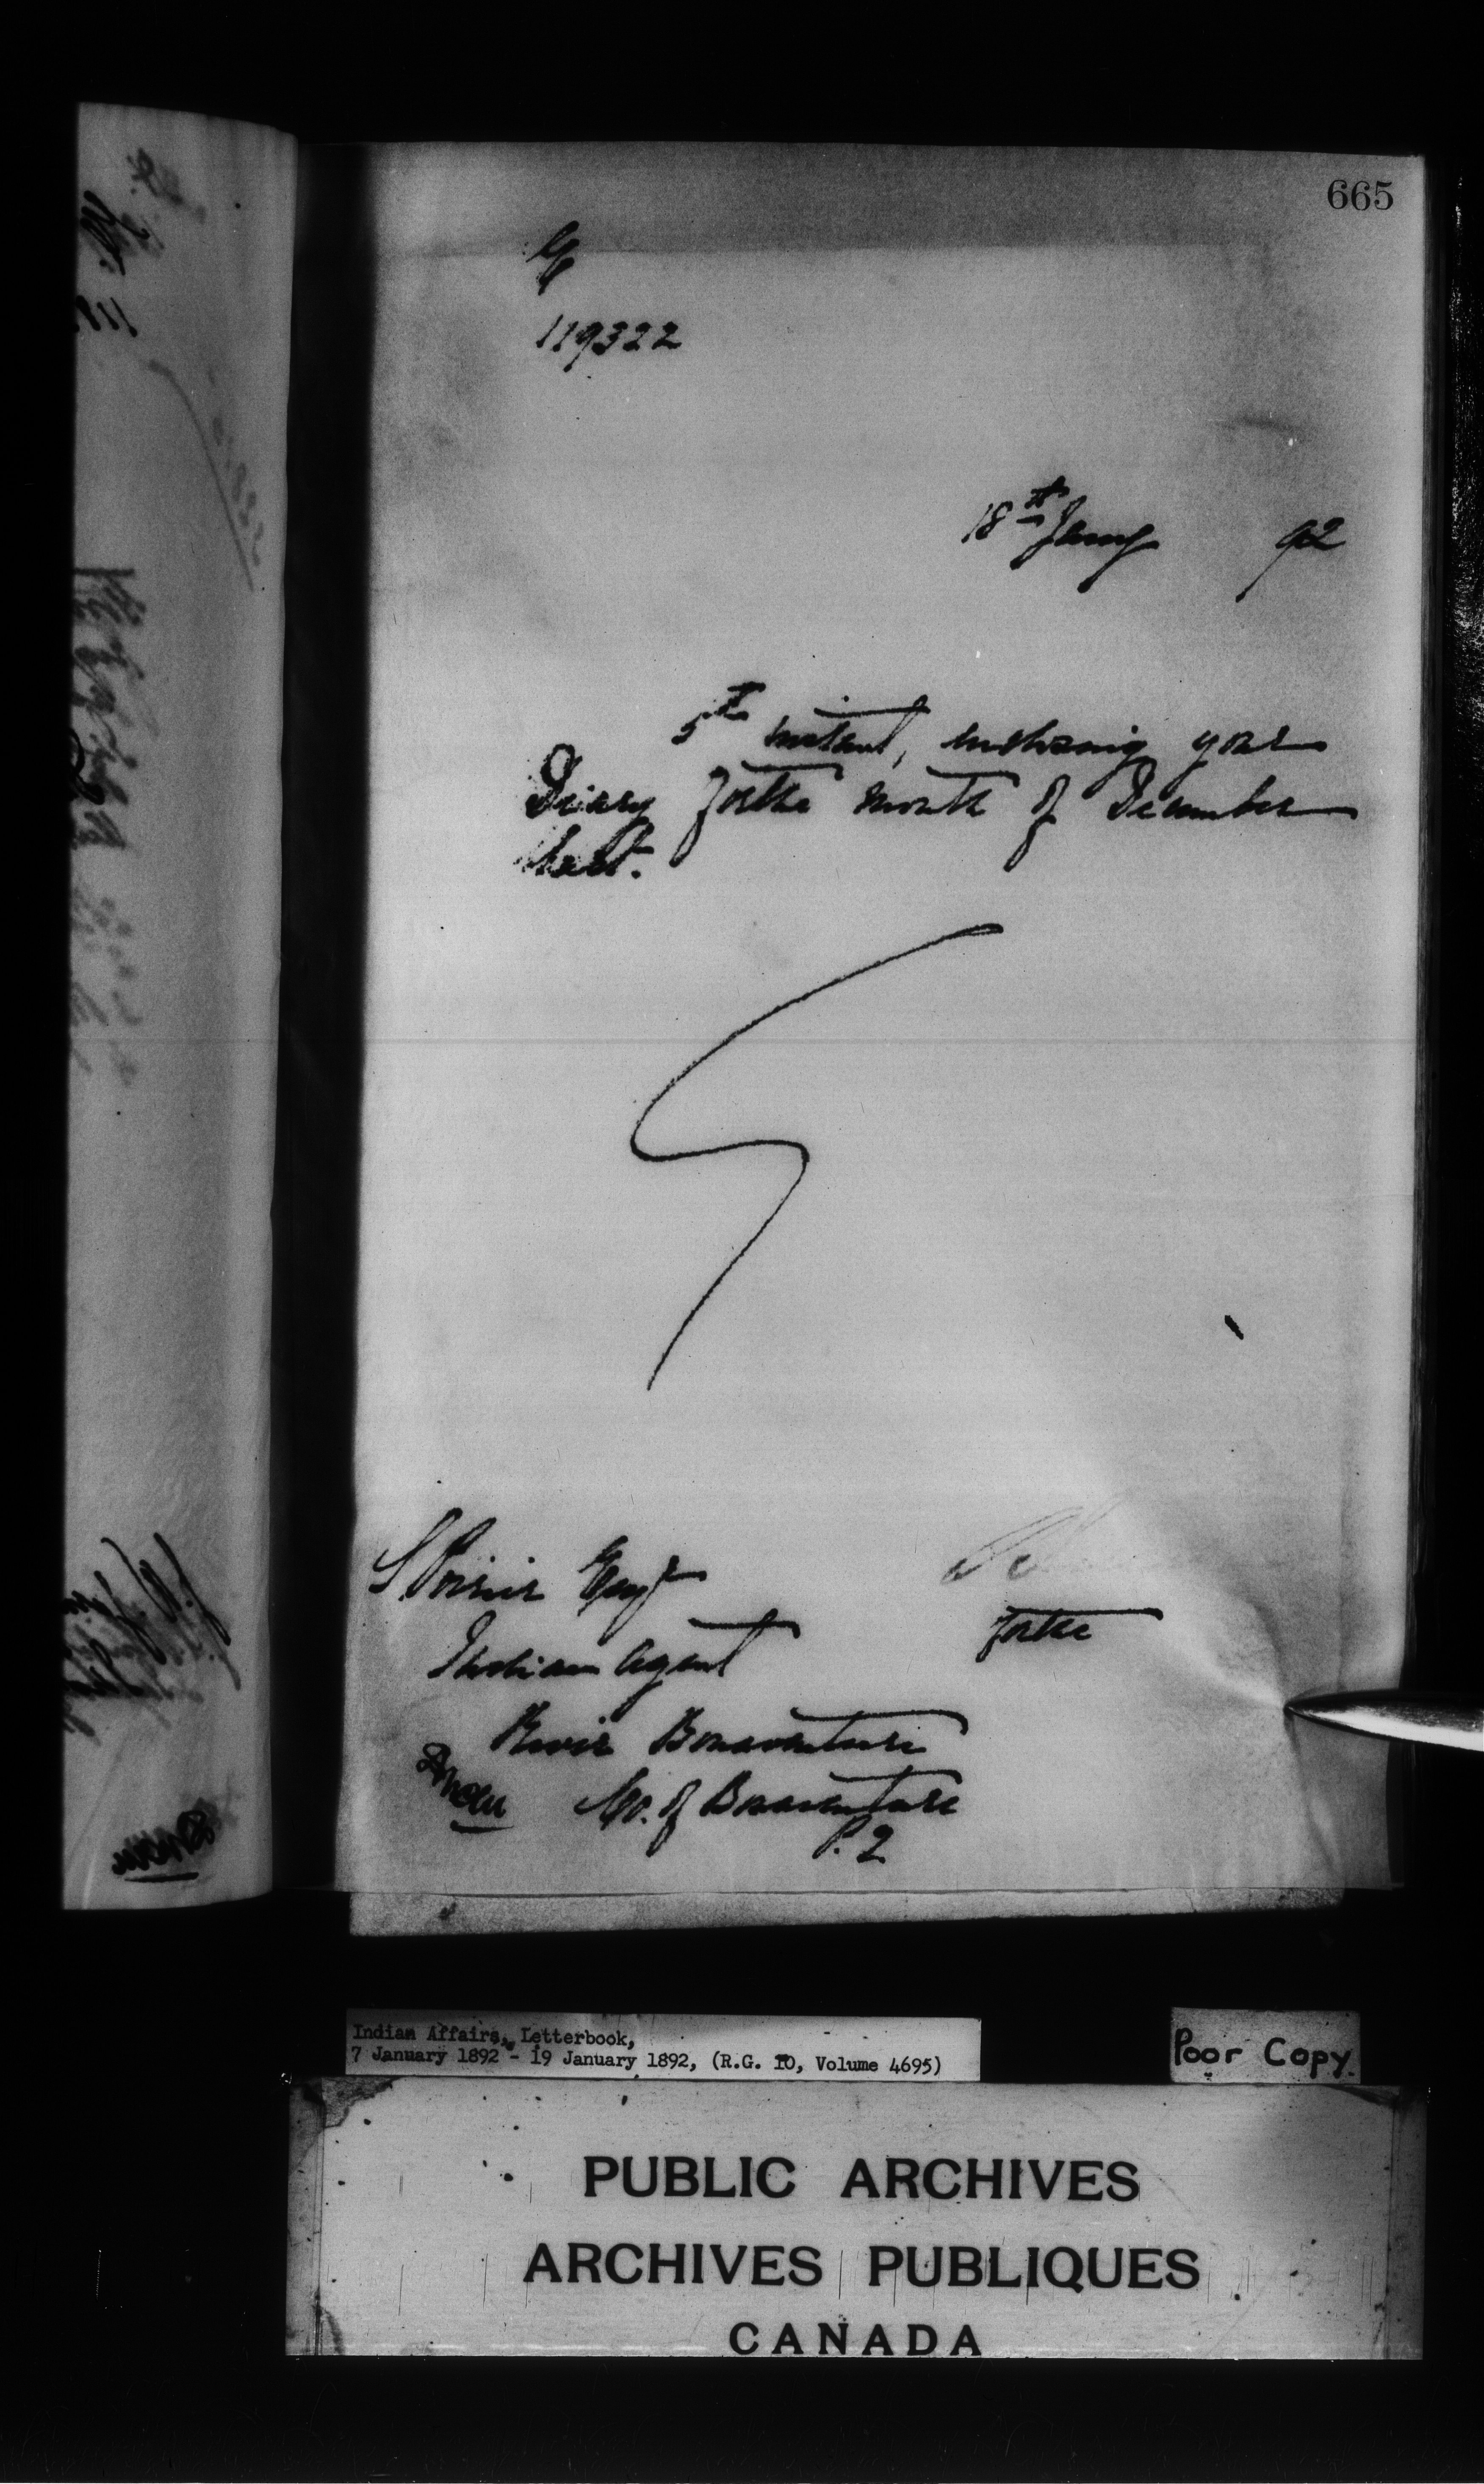 665
119322
18th Jany 92
5th instant, enclosing your
Diary for the month of December
last.
S Poirier Esqr
Indian Agent
for the
River Bonaventure
Co. of Bonaventure
P. Q
Indian Affairs, Letterbook,
7 January 1892 - 19 January 1892, (R.G. 10, Volume 4695)
Poor Copy.
PUBLIC ARCHIVES
ARCHIVES PUBLIQUES
CANADA